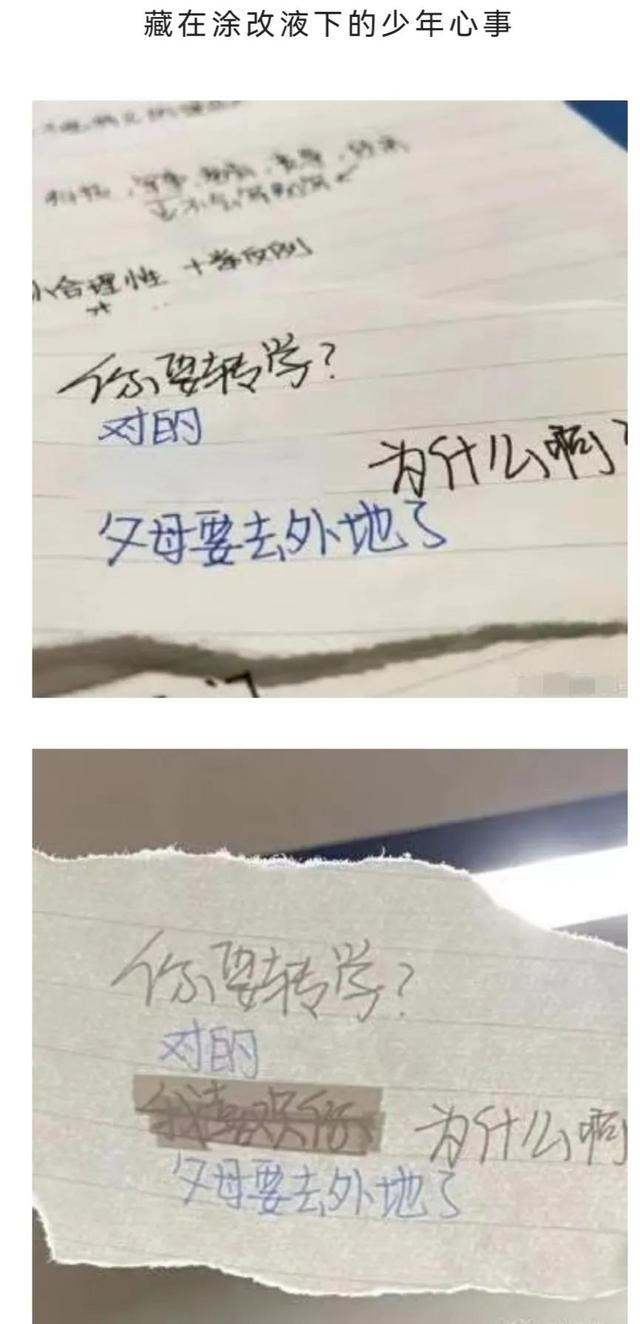 藏在涂改液下的少年心事
小合理性 十举反例
你要转学?
对的
为什么啊?
父母要去外地了
你要转学?
对的
我喜欢你
为什么啊
父母要去外地了